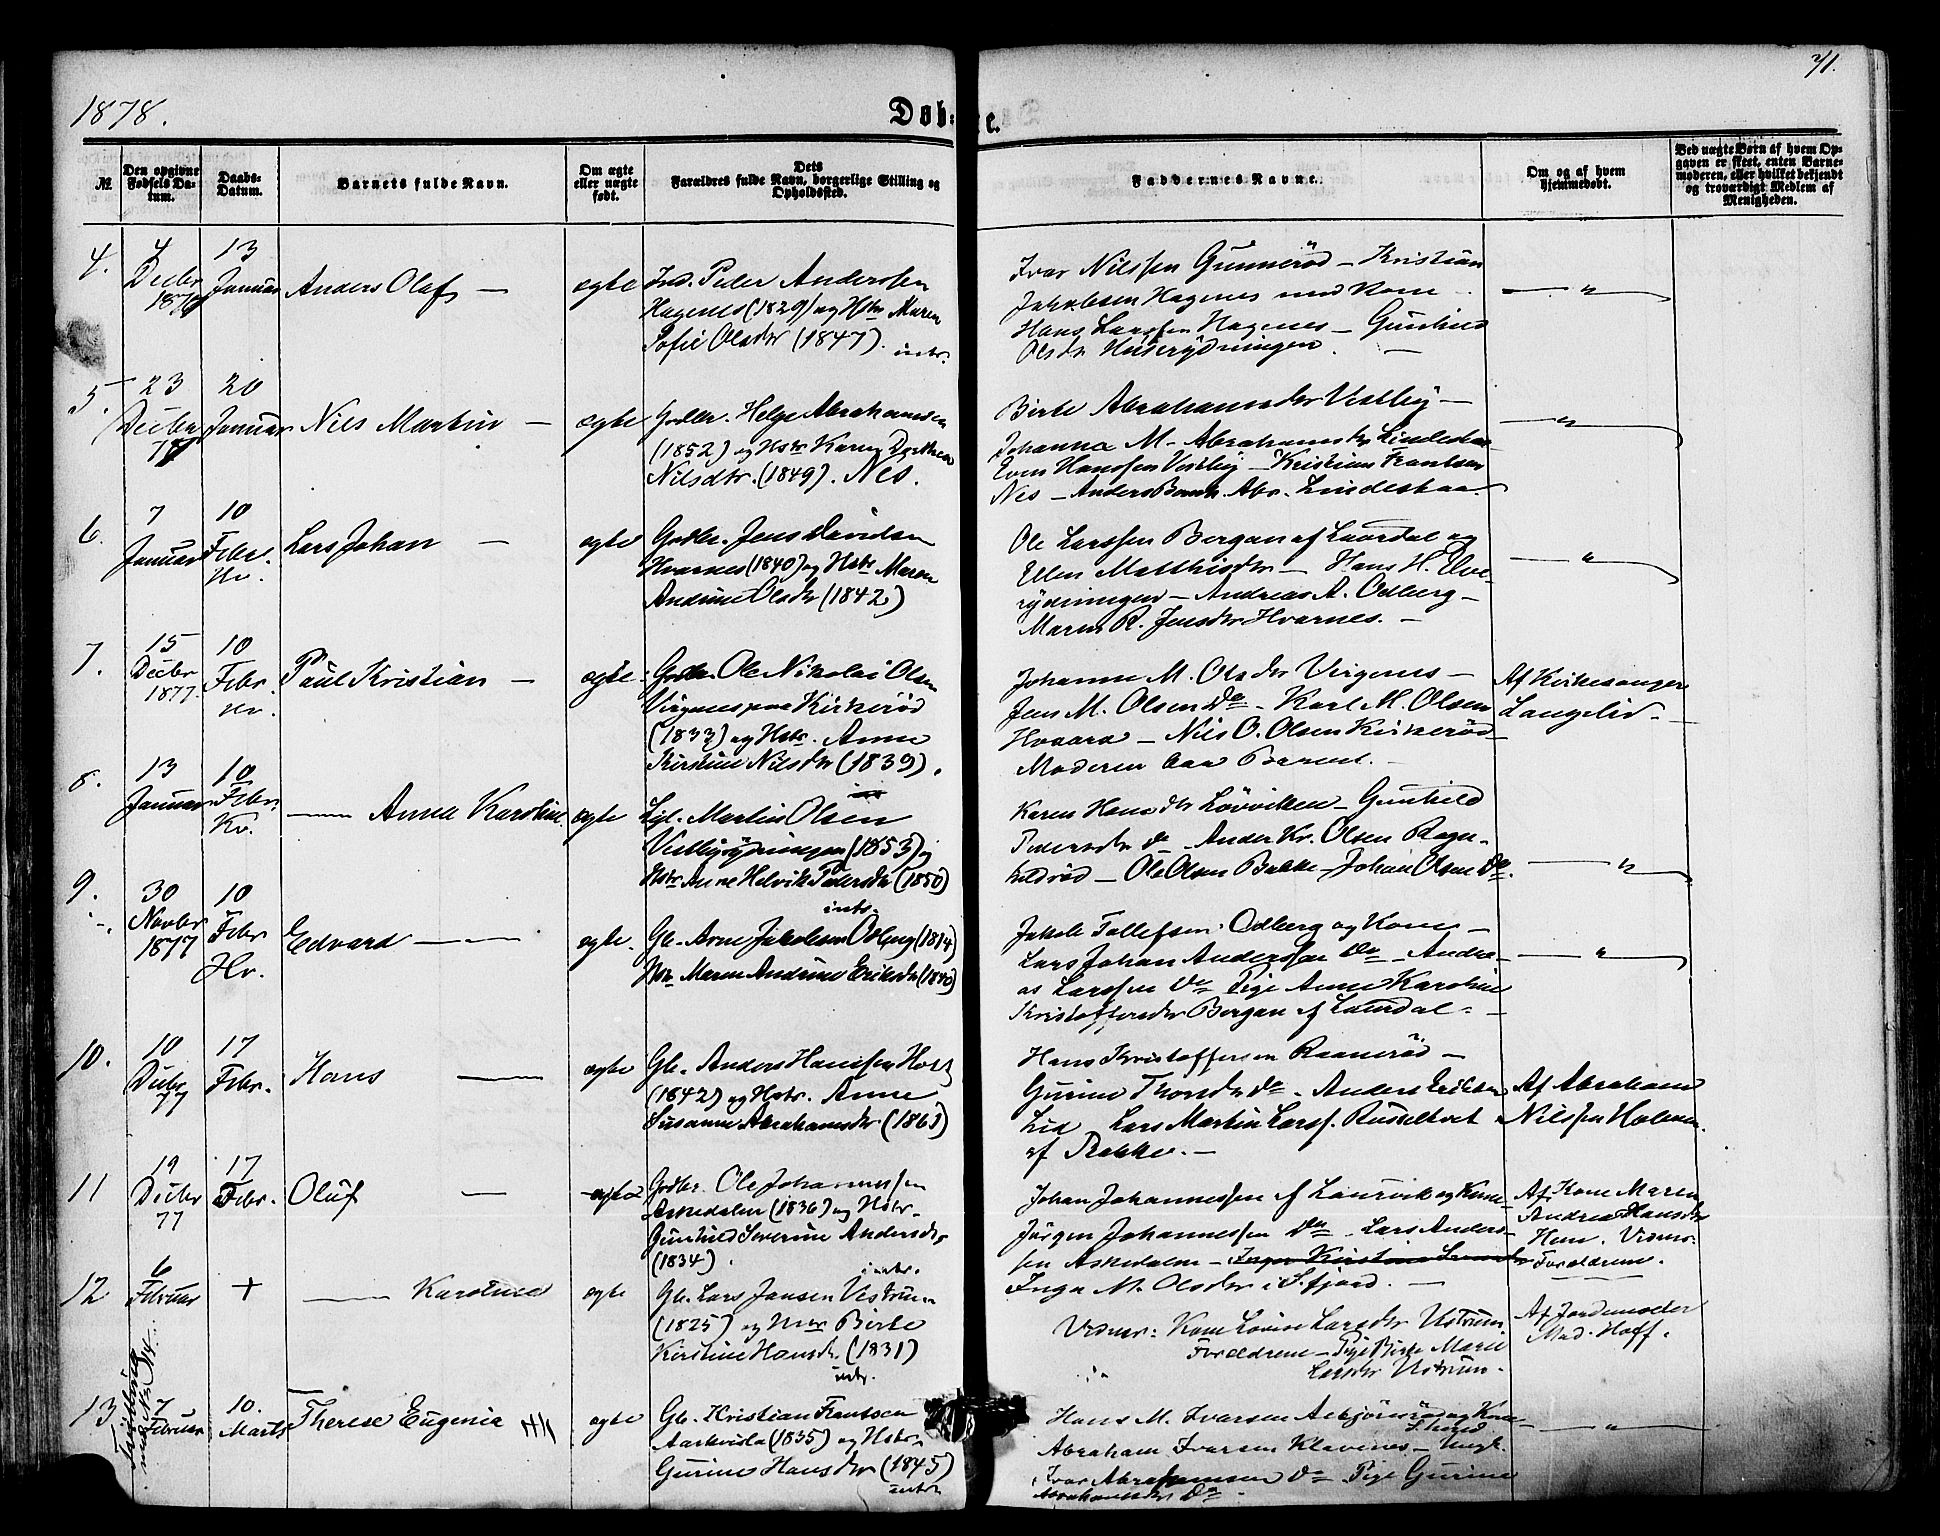 1878.
Døb=
te.
71.
№
Den opgivne Fødsels Datum.
Daabs-Datum.
Barnets fulde Navn.
Om ægte eller uægte født.
Dets Forældres fulde Navn, borgerlige Stilling og Opholdssted.
Faddernes Navne.
Om og af hvem hjemmedøbt.
Ved uægte Børn af hvem Opgaven er skeet, enten Barnemoderen, eller hvilket bekjendt og troværdigt Medlem af Menigheden.
4.
4 Decbr 1877
13 Januar
Anders Olaf —
ægte
Ind. Peder Anderssen
Hagenes (1829) og Hstr Maren
Sofie Olsdtr (1847).
intr.
Ivar Nilssen Gunnerød — Kristian
Jakobsen Hagenes med Kone
Hans Larssen Hagenes — Gunhild
Olsdtr Huserydningen. —
— " —
5.
23 Decbr 77
20 Januar
Nils Martin —
ægte
Gadbr. Helge Abrahamsen
(1852) og Hstr Karen Dorthea
Nilsdtr. (1849). Nes.
Birte Abrahamsdtr Vestby —
Johanna M. Abrahamsdtr
Even Hanssen Vestby — Kristian Frantsen
Nes — Anders Abr.
— " —
6.
7 Januar
10 Febr. Hv.
Lars Johan —
ægte
Gadbr. Jens Davidsen
Hvarnes (1840) og Hstr Maren
Andrine Olsdtr (1842)
Ole Larssen Bergan af Laurdal og
Ellen Matthisdtr — Hans H. Elve-
rydningen — Andreas A. Odberg —
Maren R. Jensdtr Hvarnes. —
— " —
7.
15 Decbr 1877.
10 Febr. Hv.
Paul Kristian —
ægte
Gadbr. Ole Nikolai Olsen
Virgenes paa Kirkerød
(1833) og Hstr. Anne
Kirstine Nilsdtr (1839).
Johanne M. Olsdtr Virgenes —
Jens M. Olsen do — Karl M. Olsen
Hvaara — Nils O. Olsen Kirkerød —
Moderen bar Barnet. —
Af Kirkesanger
Langelid —
8.
13 Januar
10 Febr. Kv.
—— Anna Karoline
ægte
Lgl. Martin Olsen
Vestbyrydningen (1853) og
Hstr Anne Helvik Pedersdtr (1850)
intr.
Karen Hansdtr Løvvikken — Gunhild
Pedersdtr do — Anders Kr. Olsen Ragn-
hildrød — Ole Olsen Bakke — Johan Olsen do.
— " —
9.
30 Novbr 1877
10 Febr Hv.
Edvard ——
ægte.
Gb. Arne Jakobsen Odberg (1814)
Hstr Maren Andrine Eriksdtr (1840)
Jakob Tollefsen Odberg og Kone —
Lars Johan Anderssen do — Andre-
as Larssen do Pige Anne Karoline
Kristoffersdtr Bergan af Laurdal —
— " —
10.
10 Decbr 77
17 Febr.
Hans ——
ægte
Gb. Anders Hanssen Holt
(1842) og Hstr. Anne
Susanne Abrahamsdtr (1863)
Hans Kristoffersen Raanerød —
Gurine Thorsdtr do — Anders Eriksen
Lid Lars Martin Larss. Russeltvet
af Bakke. —
Af Abraham
Nilssen Holmen.
11
19 Decbr 77
17 Febr.
Oluf —
ægte
Gadbr. Ole Johannessen
Askedalen (1836) og Hstr.
Gunhild Severine Andersdtr
(1834).
intr.
Johan Johannessen af Laurvik og Kone
Jørgen Johannessen do — Lars Anders-
sen Askedalen —
Inga M. Olsdtr i S.fjord. —
Af Kone Maren
Andrea Hansdtr
Hem. Vidner:
Forældrene.
12
6 Februar
+
—— Karoline
ægte
Gb. Lars Jansen Vestrum
(1825) og Hstr Birte
Kirstine Hansdtr (1831)
intr.
Vidner: Kone Lovise Larsdtr Ustrum
Forældrene — Pige Birte Marie
Larsdtr Ustrum.
Af Jordemoder
Mad. Hoff.
13
7 Februar
10. Marts
Therese Eugenie
ægte
Gb. Kristian Frantsen
Aarhusla (1835) og Hstr.
Gurine Hansdtr (1845)
intr.
Hans M. Ivarsen Aebjørnrød og Kone
Abraham Ivarsen Klavenes — Ungk.
Ivar Abrahamsen do Pige Gurine
Abrahamsdtr do.
— " —